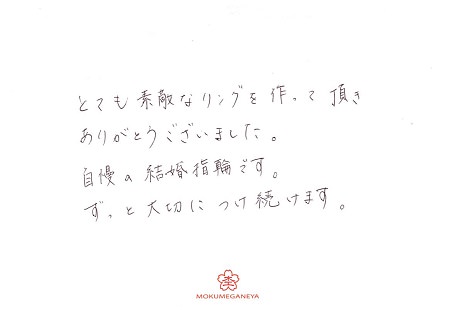 とても素敵なリングを作って頂き
ありがとうございました。
自慢の結婚指輪です。
ずっと大切につけ続けます。
MOKUMEGANEYA